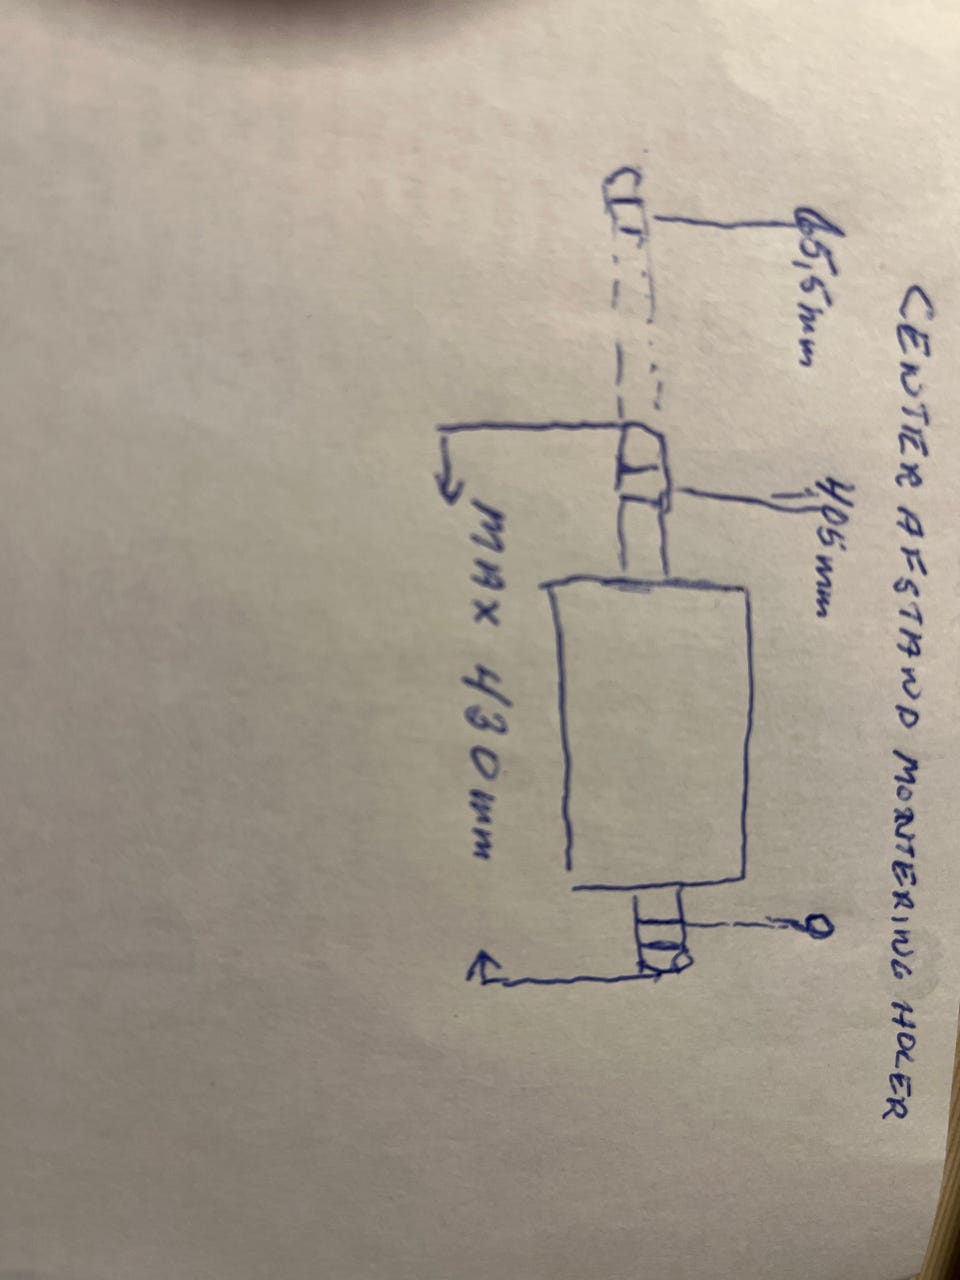 CENTER AFSTAND MONTERING HOLER
65,5mm
405mm
0
MAX 430mm